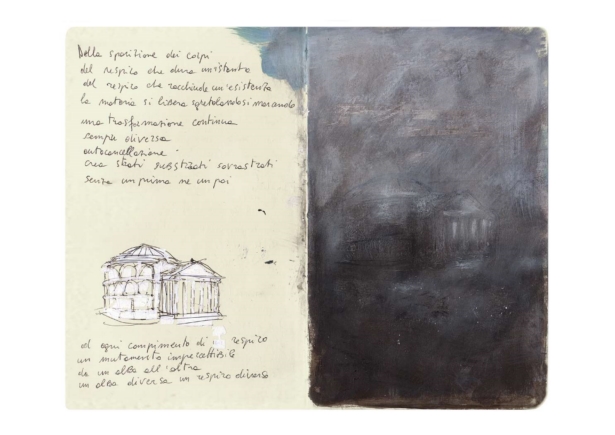 Della sparizione dei corpi
del respiro che dura un istante
del respiro che racchiude un'esistenza
la materia si libera sgretolandosi
una trasformazione continua
sempre diversa
autocancellazione
crea strati substrati sovrastrati
senza un prima ne un poi
ad ogni compimento di respiro
un mutamento impercettibile
da un alba all'altra
un alba diversa un respiro diverso